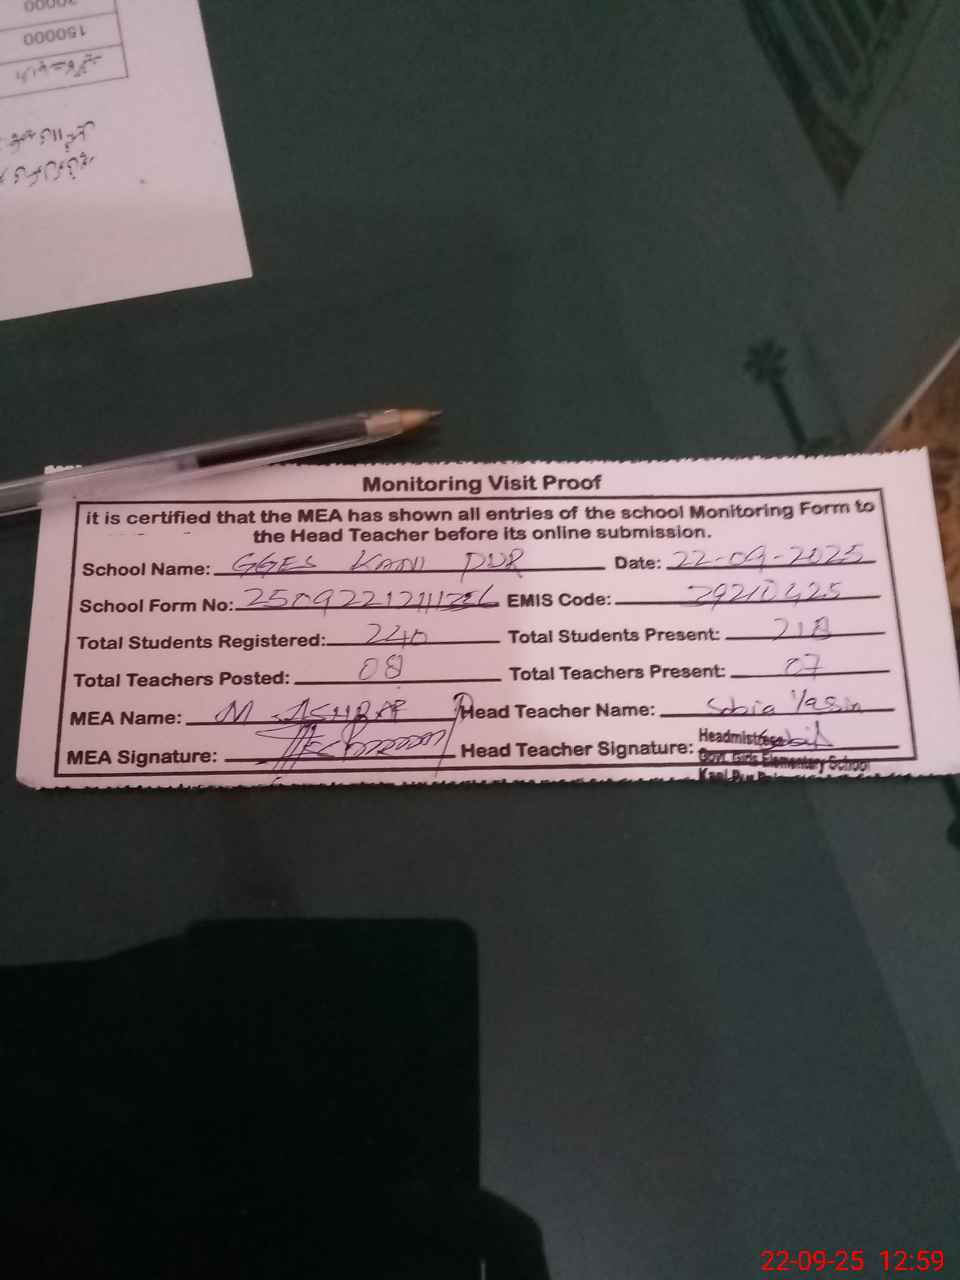 150000
Monitoring Visit Proof
it is certified that the MEA has shown all entries of the school Monitoring Form to
the Head Teacher before its online submission.
School Name: GGES KANI PUR Date: 22-09-2025
School Form No: EMIS Code:
Total Students Registered: 240 Total Students Present: 218
Total Teachers Posted: 08 Total Teachers Present: 07
MEA Name: M ASHRAF Head Teacher Name: Sobia Yasin
MEA Signature: Head Teacher Signature:
Headmistress
Govt. Girls Elementary School
Kani Pur
22-09-25 12:59